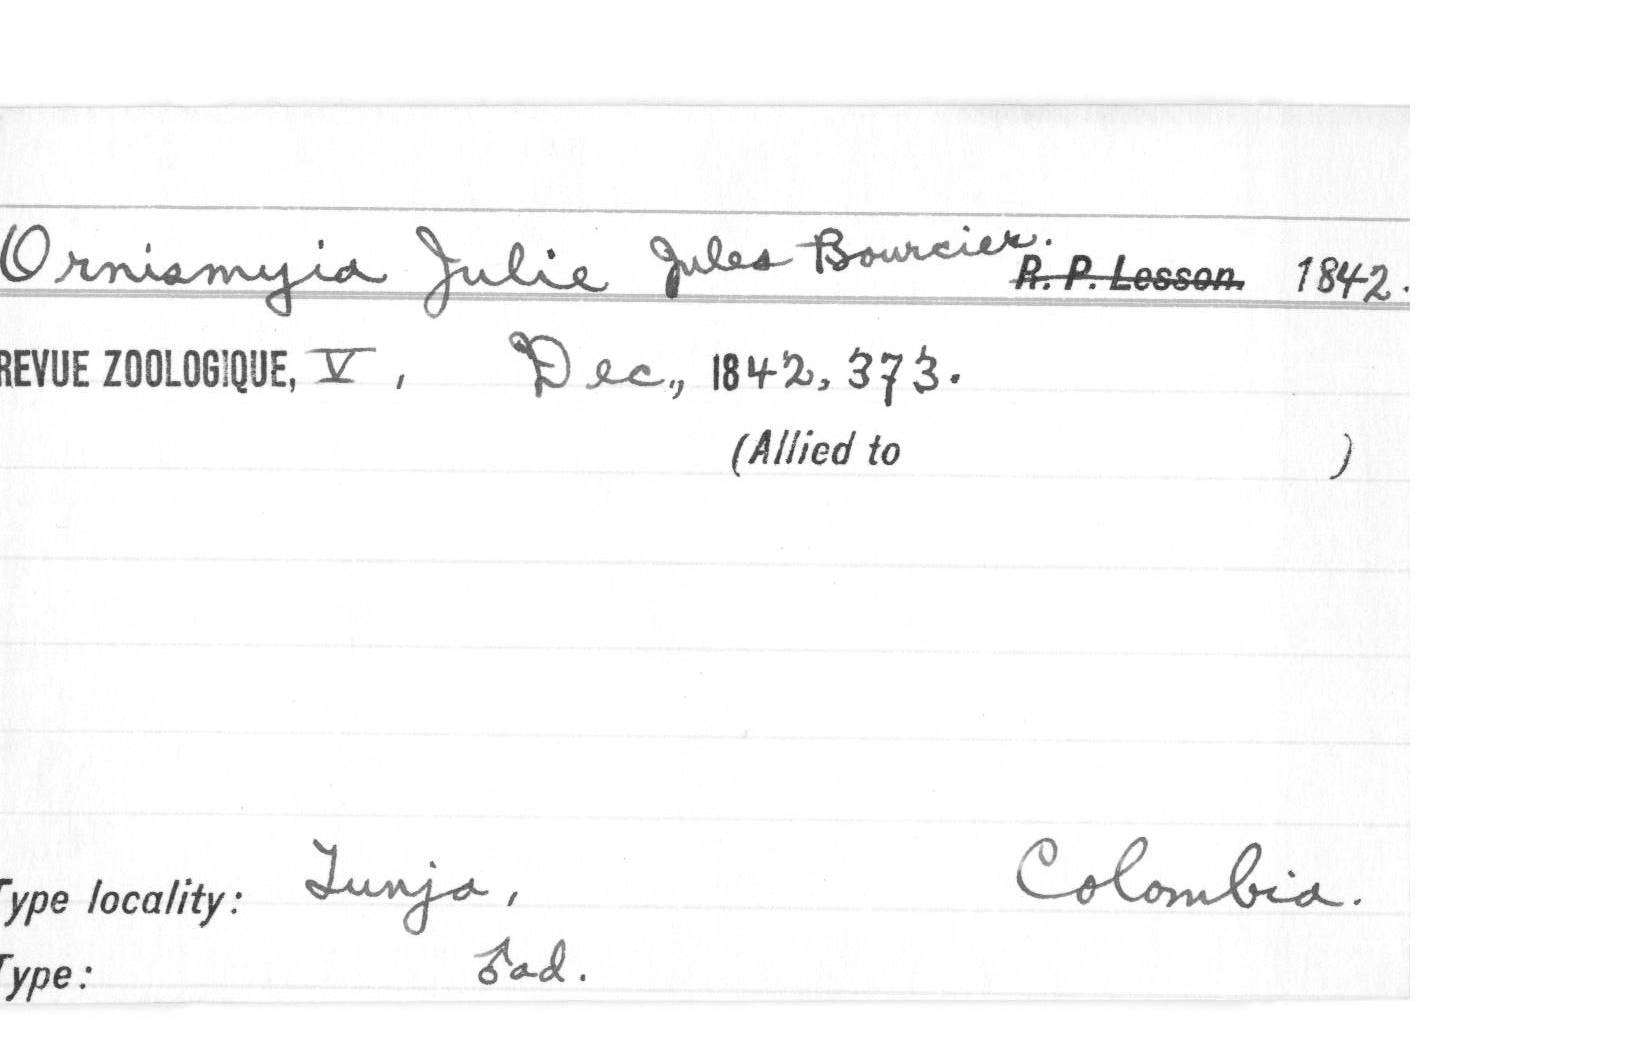 Ornismyia Julie Jules Bourcier. R. P. Lesson. 1842.
REVUE ZOOLOGIQUE, V, Dec., 1842, 373.
(Allied to )
Type locality: Tunja, Colombia.
Type: ♂ad.